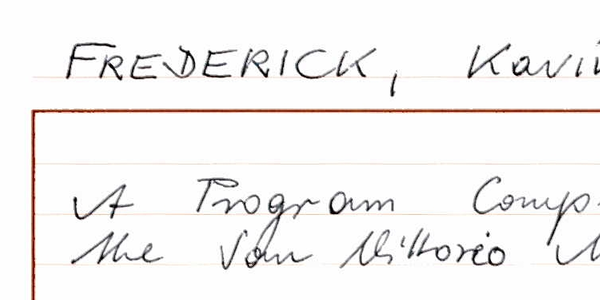 FREDERICK, Kavii
A Program Comp
the Van Vittorio